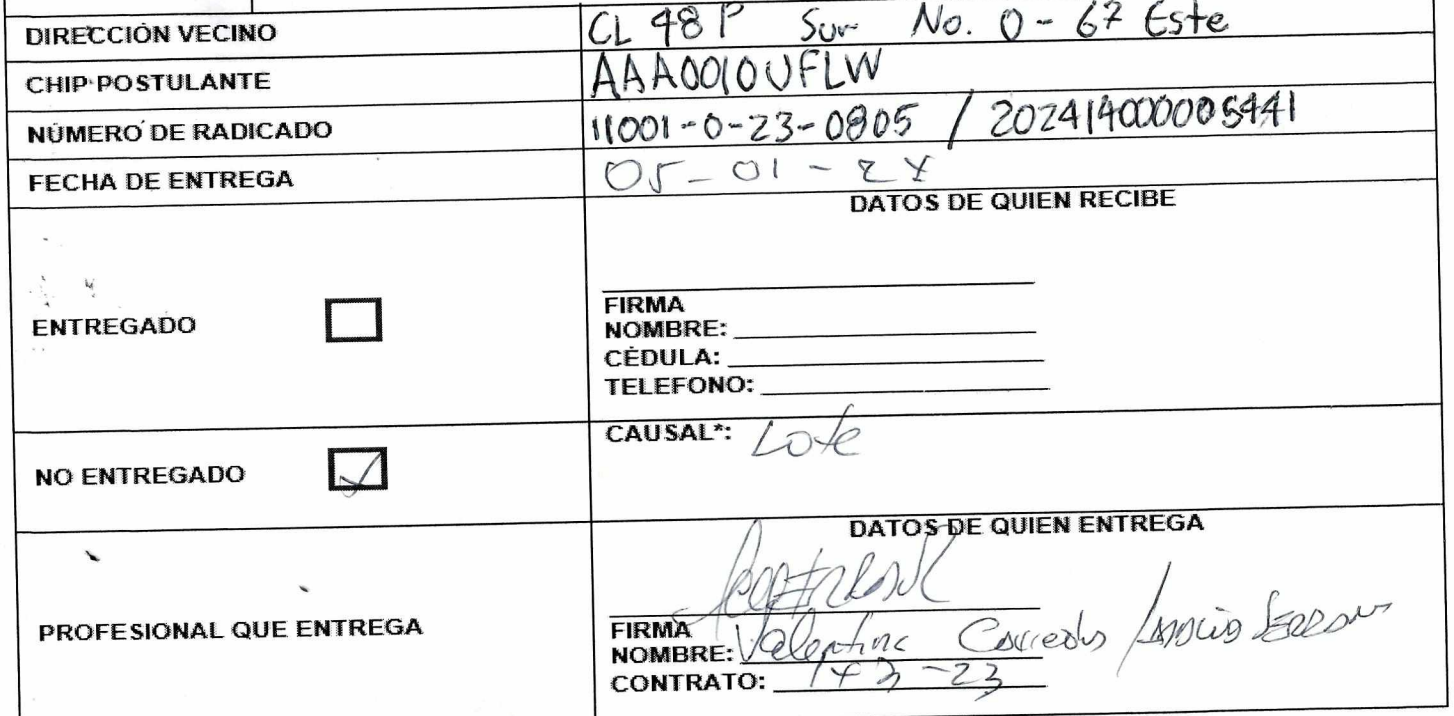 DIRECCIÓN VECINO CL 48 P Sur No. 0 - 67 Este
CHIP POSTULANTE AAA0010UFLW
NÚMERO DE RADICADO 11001-0-23-0805 / 202414000005441
FECHA DE ENTREGA 05-01-24
DATOS DE QUIEN RECIBE
ENTREGADO
FIRMA
NOMBRE:
CÉDULA:
TELEFONO:
NO ENTREGADO
CAUSAL*: Lote
DATOS DE QUIEN ENTREGA
PROFESIONAL QUE ENTREGA
FIRMA
NOMBRE: Valentina
CONTRATO: 143-23